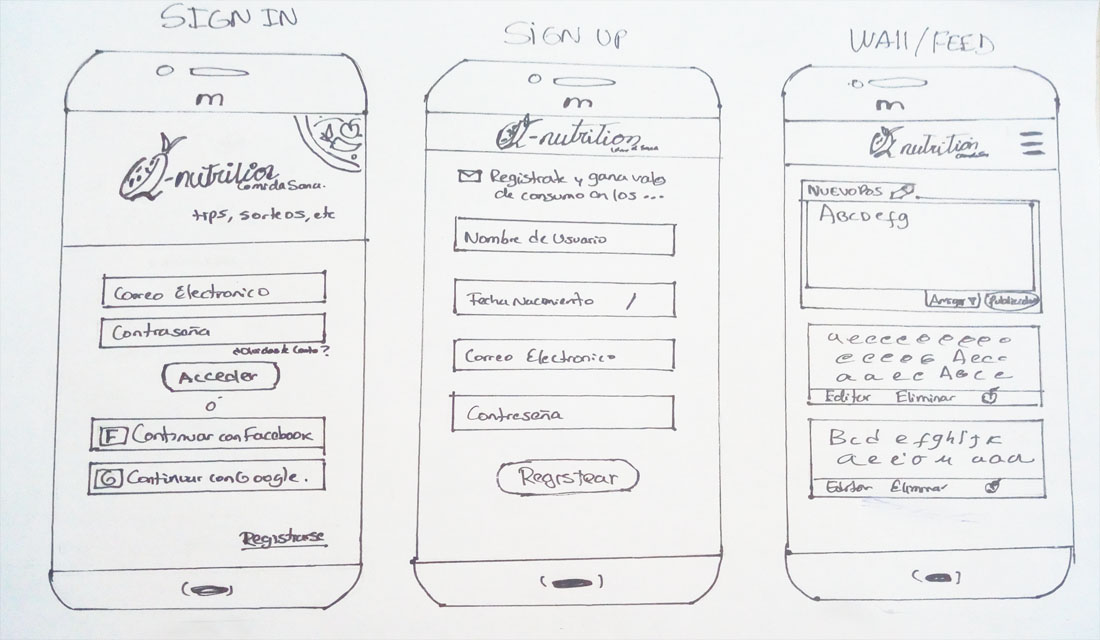 SIGN IN
m
-nutrition
Comida Sana.
tips, sorteos, etc
Correo Electronico
Contraseña
Acceder
ó
F Continuar con Facebook
G Continuar con Google.
Registrarse
SIGN UP
m
-nutrition
Registrate y gana vales
de consumo en los ...
Nombre de Usuario
Fecha Nacimiento /
Correo Electronico
Contreseña
Registrar
WAll/FEED
m
nutrition
NUEVO POS
ABCDefg
Amigos Publicar
aeccceooooo
eceoe Aecc
aaec ABCe
Editar Eliminar
Bcd efghIJK
aeeiou aaa
Editar Eliminar